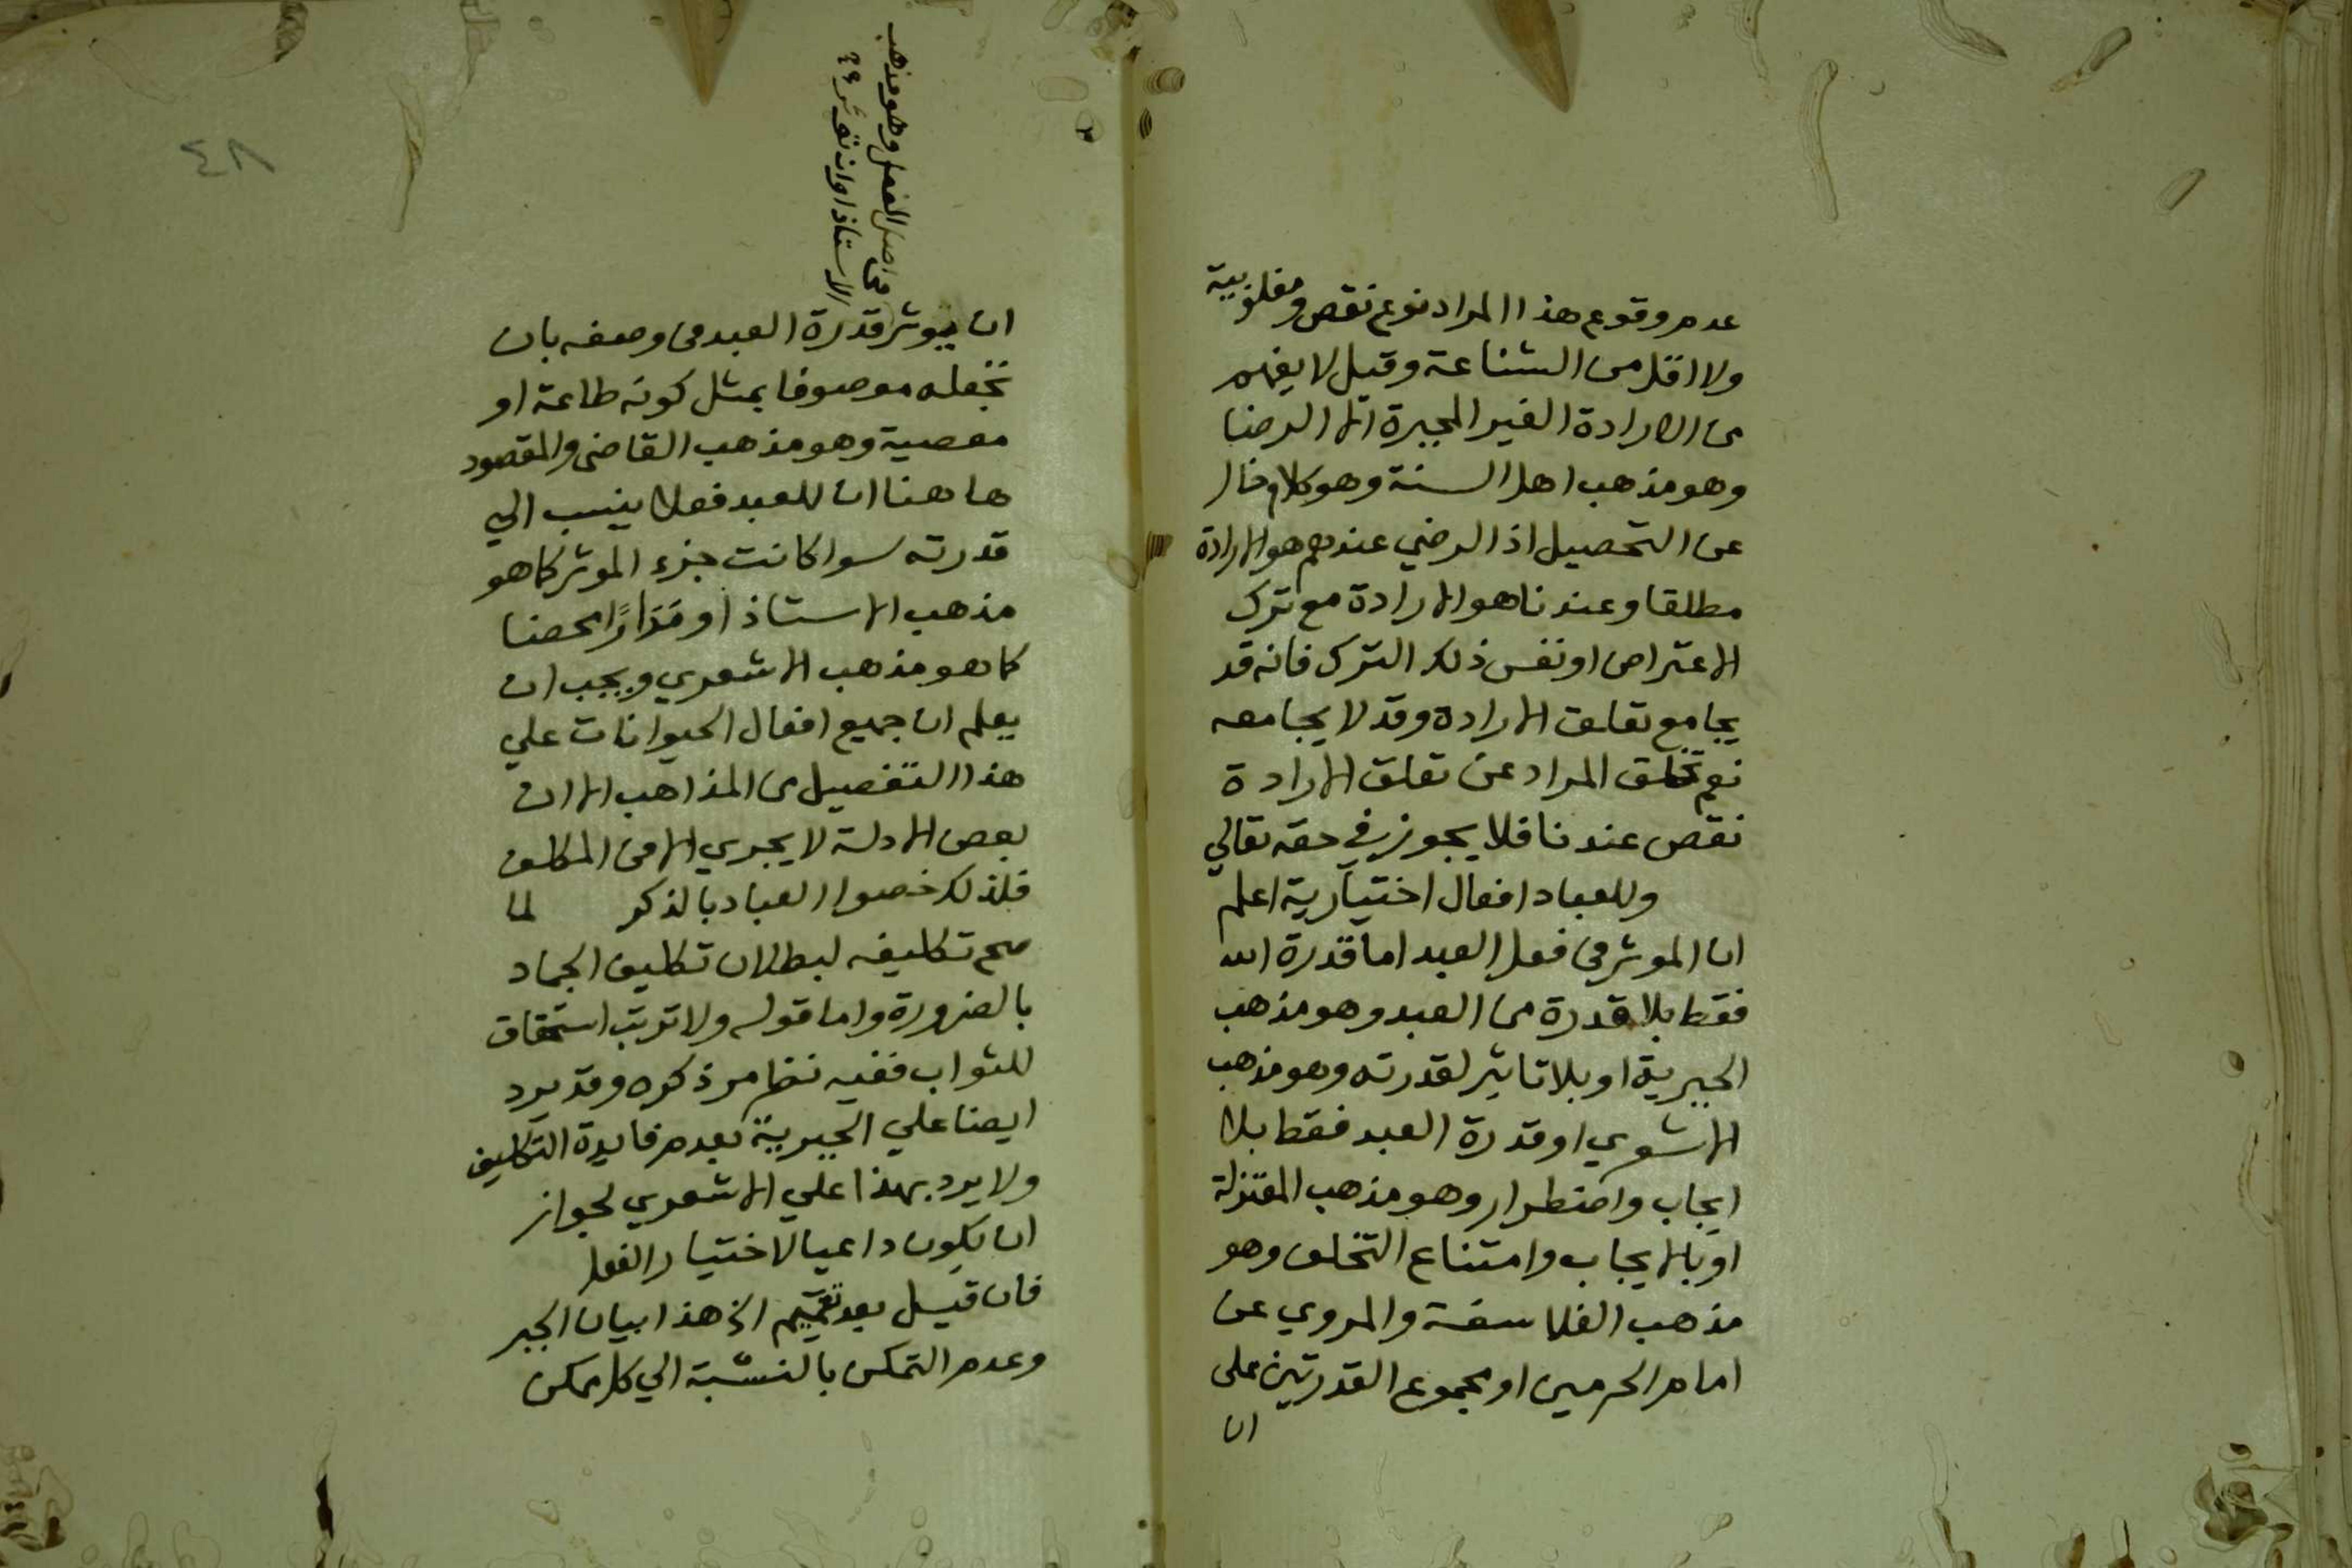 عدم وقوع هذا المراد نوع نقص ومغلوبية
ولا اقل من الشناعة وقيل لا يفهم
من الارادة الغير المجبرة الا الرضا
وهو مذهب اهل السنة وهو كلام خال
عن التحصيل اذ الرضي عندهم هو الارادة
مطلقا وعندنا هو الارادة مع ترك
الاعتراض او نفس ذلك الترك فانه قد
يجامع تعلق الارادة وقد لا يجامعه
نعم تخلف المراد عن تعلق الارادة
نقص عندنا فلا يجوز في حقه تعالي
وللعباد افعال اختيارية اعلم
ان الموثر في فعل العبد اما قدرة الله
فقط بلا قدرة من العبد وهو مذهب
الجبرية او بلا تاثير لقدرته وهو مذهب
الاشعري او قدرة العبد فقط بلا
ايجاب واضطرار وهو مذهب المعتزلة
او بالايجاب وامتناع التخلف وهو
مذهب الفلاسفة والمروي عن
امام الحرمين او مجموع القدرتين على
ان
٤٨
في اصل الفعل وهو مذهب
الاستاذ او ان توثر
ان يوثر قدرة العبد في وصفه بان
تجعله موصوفا بمثل كونه طاعة او
معصية وهو مذهب القاضي والمقصود
هاهنا ان للعبد فعلا ينسب الي
قدرته سوا كانت جزء الموثر كما هو
مذهب الاستاذ او مَدَارًا محضا
كما هو مذهب الاشعري ويجب ان
يعلم ان جميع افعال الحيوانات علي
هذا التفصيل من المذاهب الا ان
بعض الادلة لا يجري الا في المكلف
فلذلك خصوا العباد بالذكر لما
صح تكليفه لبطلان تكليف الجماد
بالضرورة واما قوله ولا ترتب استحقاق
للثواب ففيه نظر مر ذكره وقد يرد
ايضا علي الجبرية بعدم فايدة التكليف
ولا يرد بهذا علي الاشعري لجواز
ان يكون داعيا لاختيار الفعل
فان قيل بعد تعميم الخ هذا بيان الجبر
وعدم التمكن بالنسبة الي كل ممكن